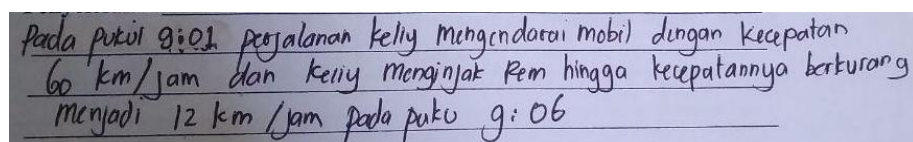 Pada pukul 9:01 perjalanan keliy mengendarai mobil dengan kecepatan
60 km/jam dan keliy menginjak Rem hingga kecepatannya berkurang
menjadi 12 km/jam pada puku 9:06